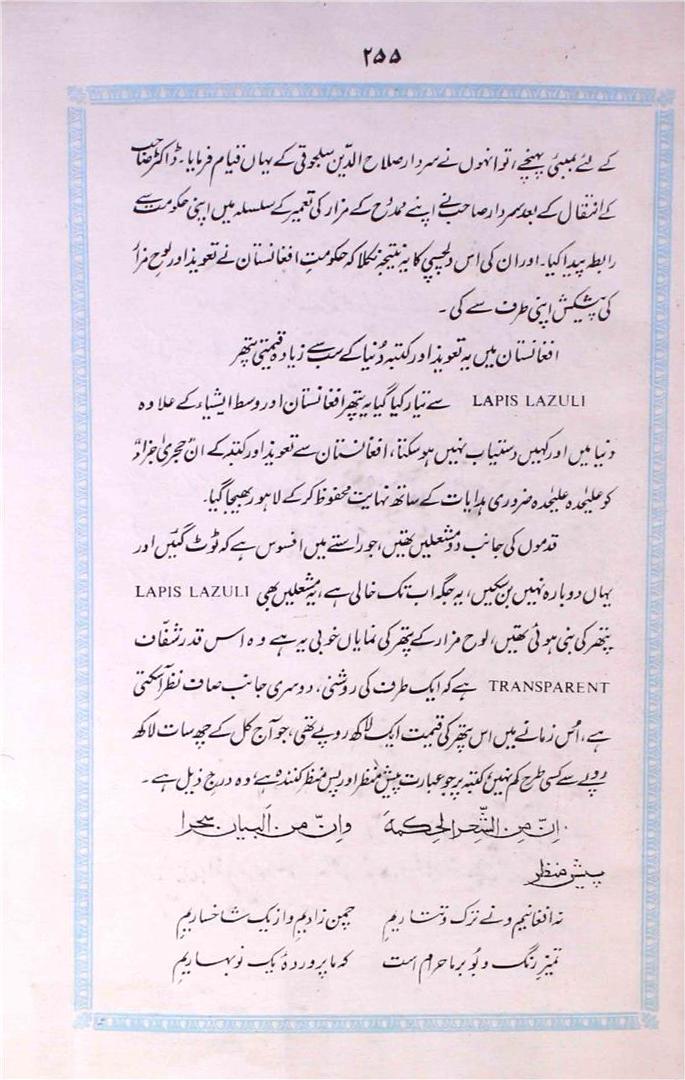 ۲۵۵
کے لئے بمبئی پہنچے، تو انہوں نے سردار صلاح الدّین سلجوقی کے یہاں قیام فرمایا۔ ڈاکٹر صاحب
کے انتقال کے بعد سردار صاحب نے اپنے ممدُوح کے مزار کی تعمیر کے سلسلہ میں اپنی حکومت سے
رابطہ پیدا کیا۔ اور ان کی اس دلچسپی کا یہ نتیجہ نکلا کہ حکومتِ افغانستان نے تعویذ اور لوحِ مزار
کی پیشکش اپنی طرف سے کی۔
افغانستان میں یہ تعویذ اور کتبہ دُنیا کے سب سے زیادہ قیمتی پتھر
LAPIS LAZULI سے تیار کیا گیا یہ پتھر افغانستان اور وسط ایشیاء کے علاوہ
دنیا میں اور کہیں دستیاب نہیں ہو سکتا، افغانستان سے تعویذ اور کتبہ کے ان حجری اجزاء
کو علیٰحدہ علیٰحدہ ضروری ہدایات کے ساتھ نہایت محفوظ کر کے لاہور بھیجا گیا۔
قدموں کی جانب دو مشعلیں تھیں، جو راستے میں افسوس ہے کہ ٹوٹ گئیں اور
یہاں دوبارہ نہیں بن سکیں، یہ جگہ اب تک خالی ہے، یہ مشعلیں بھی LAPIS LAZULI
پتھر کی بنی ہوئی تھیں، لوح مزار کے پتھر کی نمایاں خوبی یہ ہے وہ اس قدر شفّاف
TRANSPARENT ہے کہ ایک طرف کی روشنی، دوسری جانب صاف نظر آسکتی
ہے، اُس زمانے میں اس پتھر کی قیمت ایک لاکھ روپے تھی، جو آج کل کے چھ سات لاکھ
روپے سے کسی طرح کم نہیں کتبہ پر جو عبارت پیش منظر اور پس منظر کنندہ ہے، وہ درج ذیل ہے۔
اِنّ مِن الشِّعرِ الحِکمۃَ وَاِنّ مِن البیان سحرا
پیش منظر
نہ افغانیم و نے ترک و تتاریم چمن زادیم و از یک شاخساریم
تمیز رنگ و بُو بر ما حرام است کہ ما پروردۂ یک نو بہاریم